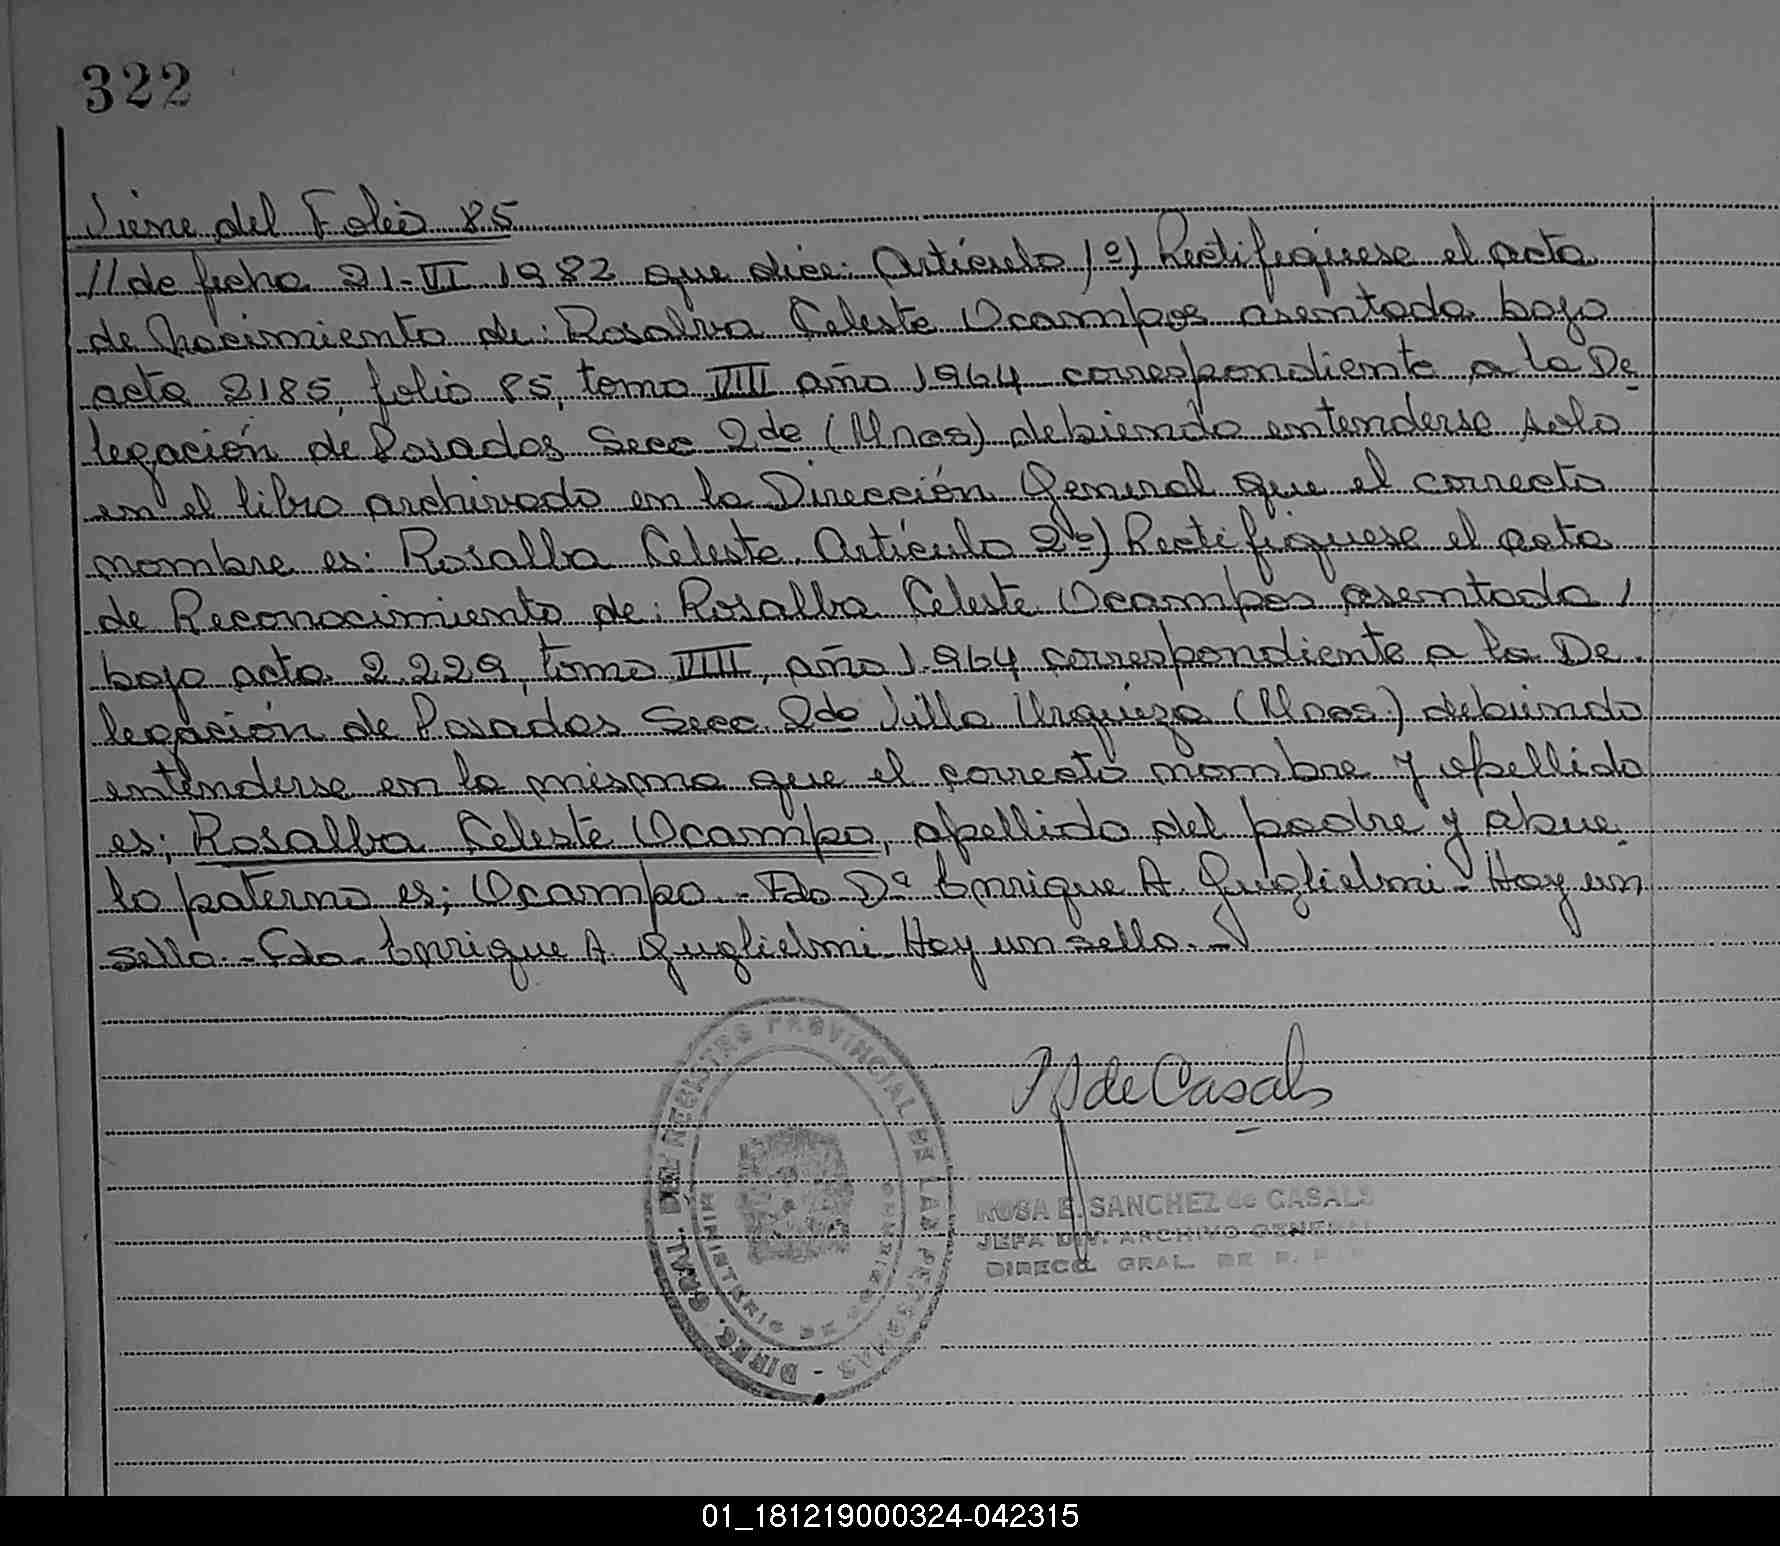 322
Viene del Folio 85
// de fecha 21-VI 1982 que dice: Artículo 1º) Rectifíquese el acta
de Nacimiento de: Rosalva Celeste Ocampos asentada bajo
acta 2185, folio 85, tomo VIII año 1964 correspondiente a la De
legación de Posadas Secc 2da (Mnes) debiendo entenderse solo
en el libro archivado en la Dirección General que el correcto
nombre es: Rosalba Celeste. Artículo 2do) Rectifíquese el acta
de Reconocimiento de: Rosalba Celeste Ocampos asentada /
bajo acta 2.229, tomo VIII, año 1.964 correspondiente a la De
legación de Posadas Secc. 2da Villa Urquiza (Mnes.) debiendo
entenderse en la misma que el correcto nombre y apellido
es; Rosalba Celeste Ocampo, apellido del padre y abue
lo paterno es; Ocampo.- Fdo Dº Enrique A. Guglielmi - Hay un
sello.- Fdo. Enrique A. Guglielmi. Hay un sello.-
de Casals
DIREC. GRAL. DEL REGISTRO PROVINCIAL DE LAS PERSONAS -
MINISTERIO DE GOBIERNO
ROSA E. SANCHEZ de CASALS
JEFA DIV. ARCHIVO GENERAL
DIRECC. GRAL. DE R.
01_181219000324-042315